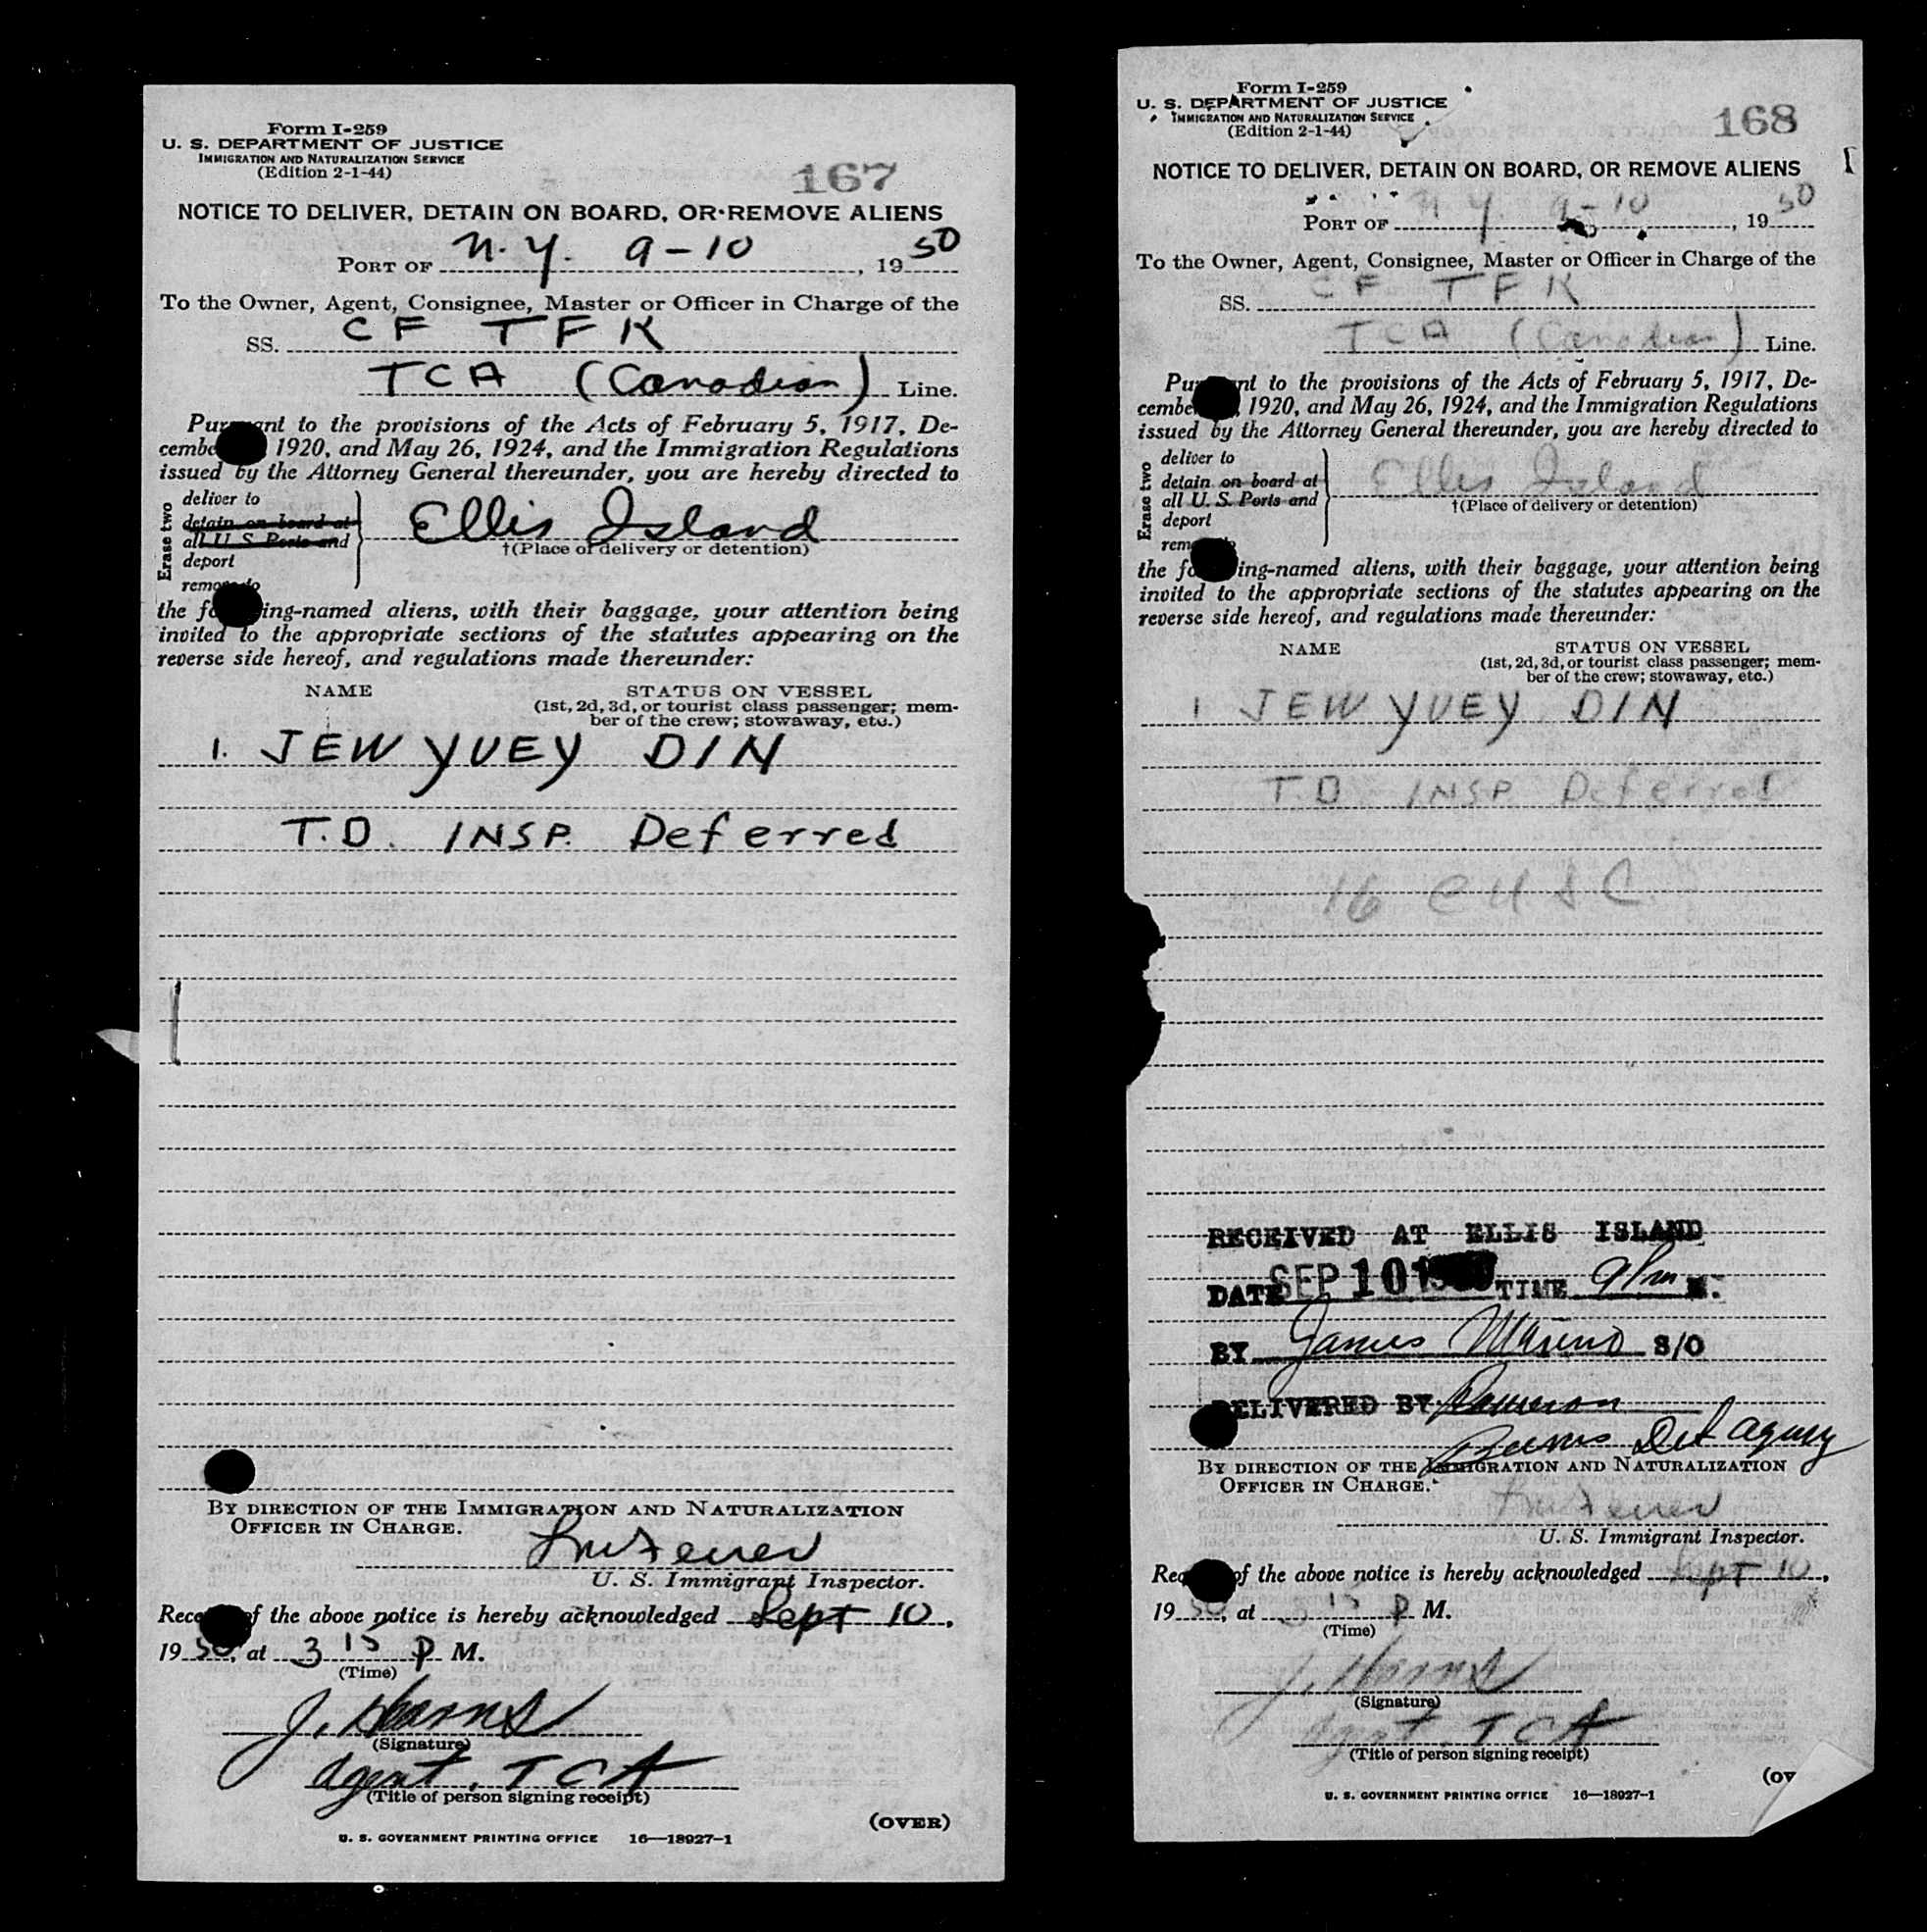 Form I-259
U. S. DEPARTMENT OF JUSTICE
IMMIGRATION AND NATURALIZATION SERVICE
(Edition 2-1-44)
167
NOTICE TO DELIVER, DETAIN ON BOARD, OR REMOVE ALIENS
PORT OF N.Y. 9-10, 1950
To the Owner, Agent, Consignee, Master or Officer in Charge of the
SS. CF TFK
TCA (Canadian) Line.
Pursuant to the provisions of the Acts of February 5, 1917, De-
1920, and May 26, 1924, and the Immigration Regulations
issued by the Attorney General thereunder, you are hereby directed to
Erase two
deliver to
detain on board at
all U. S. Ports and
deport
remove to
Ellis Island
†(Place of delivery or detention)
the ing-named aliens, with their baggage, your attention being
invited to the appropriate sections of the statutes appearing on the
reverse side hereof, and regulations made thereunder:
NAME STATUS ON VESSEL
(1st, 2d, 3d, or tourist class passenger; mem-
ber of the crew; stowaway, etc.)
1. JEW YUEY DIN
T.D. INSP. Deferred
BY DIRECTION OF THE IMMIGRATION AND NATURALIZATION
OFFICER IN CHARGE.
U. S. Immigrant Inspector.
of the above notice is hereby acknowledged Sept 10,
1950, at 3 15 P M.
(Time)
J.
(Signature)
Agent, TCA
(Title of person signing receipt)
(OVER)
U. S. GOVERNMENT PRINTING OFFICE 16—18927-1
Form I-259
U. S. DEPARTMENT OF JUSTICE
IMMIGRATION AND NATURALIZATION SERVICE
(Edition 2-1-44)
168
NOTICE TO DELIVER, DETAIN ON BOARD, OR REMOVE ALIENS
PORT OF N.Y. 9-10, 1950
To the Owner, Agent, Consignee, Master or Officer in Charge of the
SS. CF TFK
TCA (Canadian) Line.
Pursuant to the provisions of the Acts of February 5, 1917, De-
1920, and May 26, 1924, and the Immigration Regulations
issued by the Attorney General thereunder, you are hereby directed to
Erase two
deliver to
detain on board at
all U. S. Ports and
deport
Ellis Island
†(Place of delivery or detention)
the ing-named aliens, with their baggage, your attention being
invited to the appropriate sections of the statutes appearing on the
reverse side hereof, and regulations made thereunder:
NAME STATUS ON VESSEL
(1st, 2d, 3d, or tourist class passenger; mem-
ber of the crew; stowaway, etc.)
1 JEW YUEY DIN
T.D. INSP. Deferred
16
RECEIVED AT ELLIS ISLAND
DATE SEP 10 TIME 9 Pm M.
BY James S/O
DELIVERED BY
Burns Det Agency
BY DIRECTION OF THE IMMIGRATION AND NATURALIZATION
OFFICER IN CHARGE.
U. S. Immigrant Inspector.
of the above notice is hereby acknowledged Sept 10,
1950, at 3 15 P M.
(Time)
J.
(Signature)
Agent, TCA
(Title of person signing receipt)
U. S. GOVERNMENT PRINTING OFFICE 16—18927-1